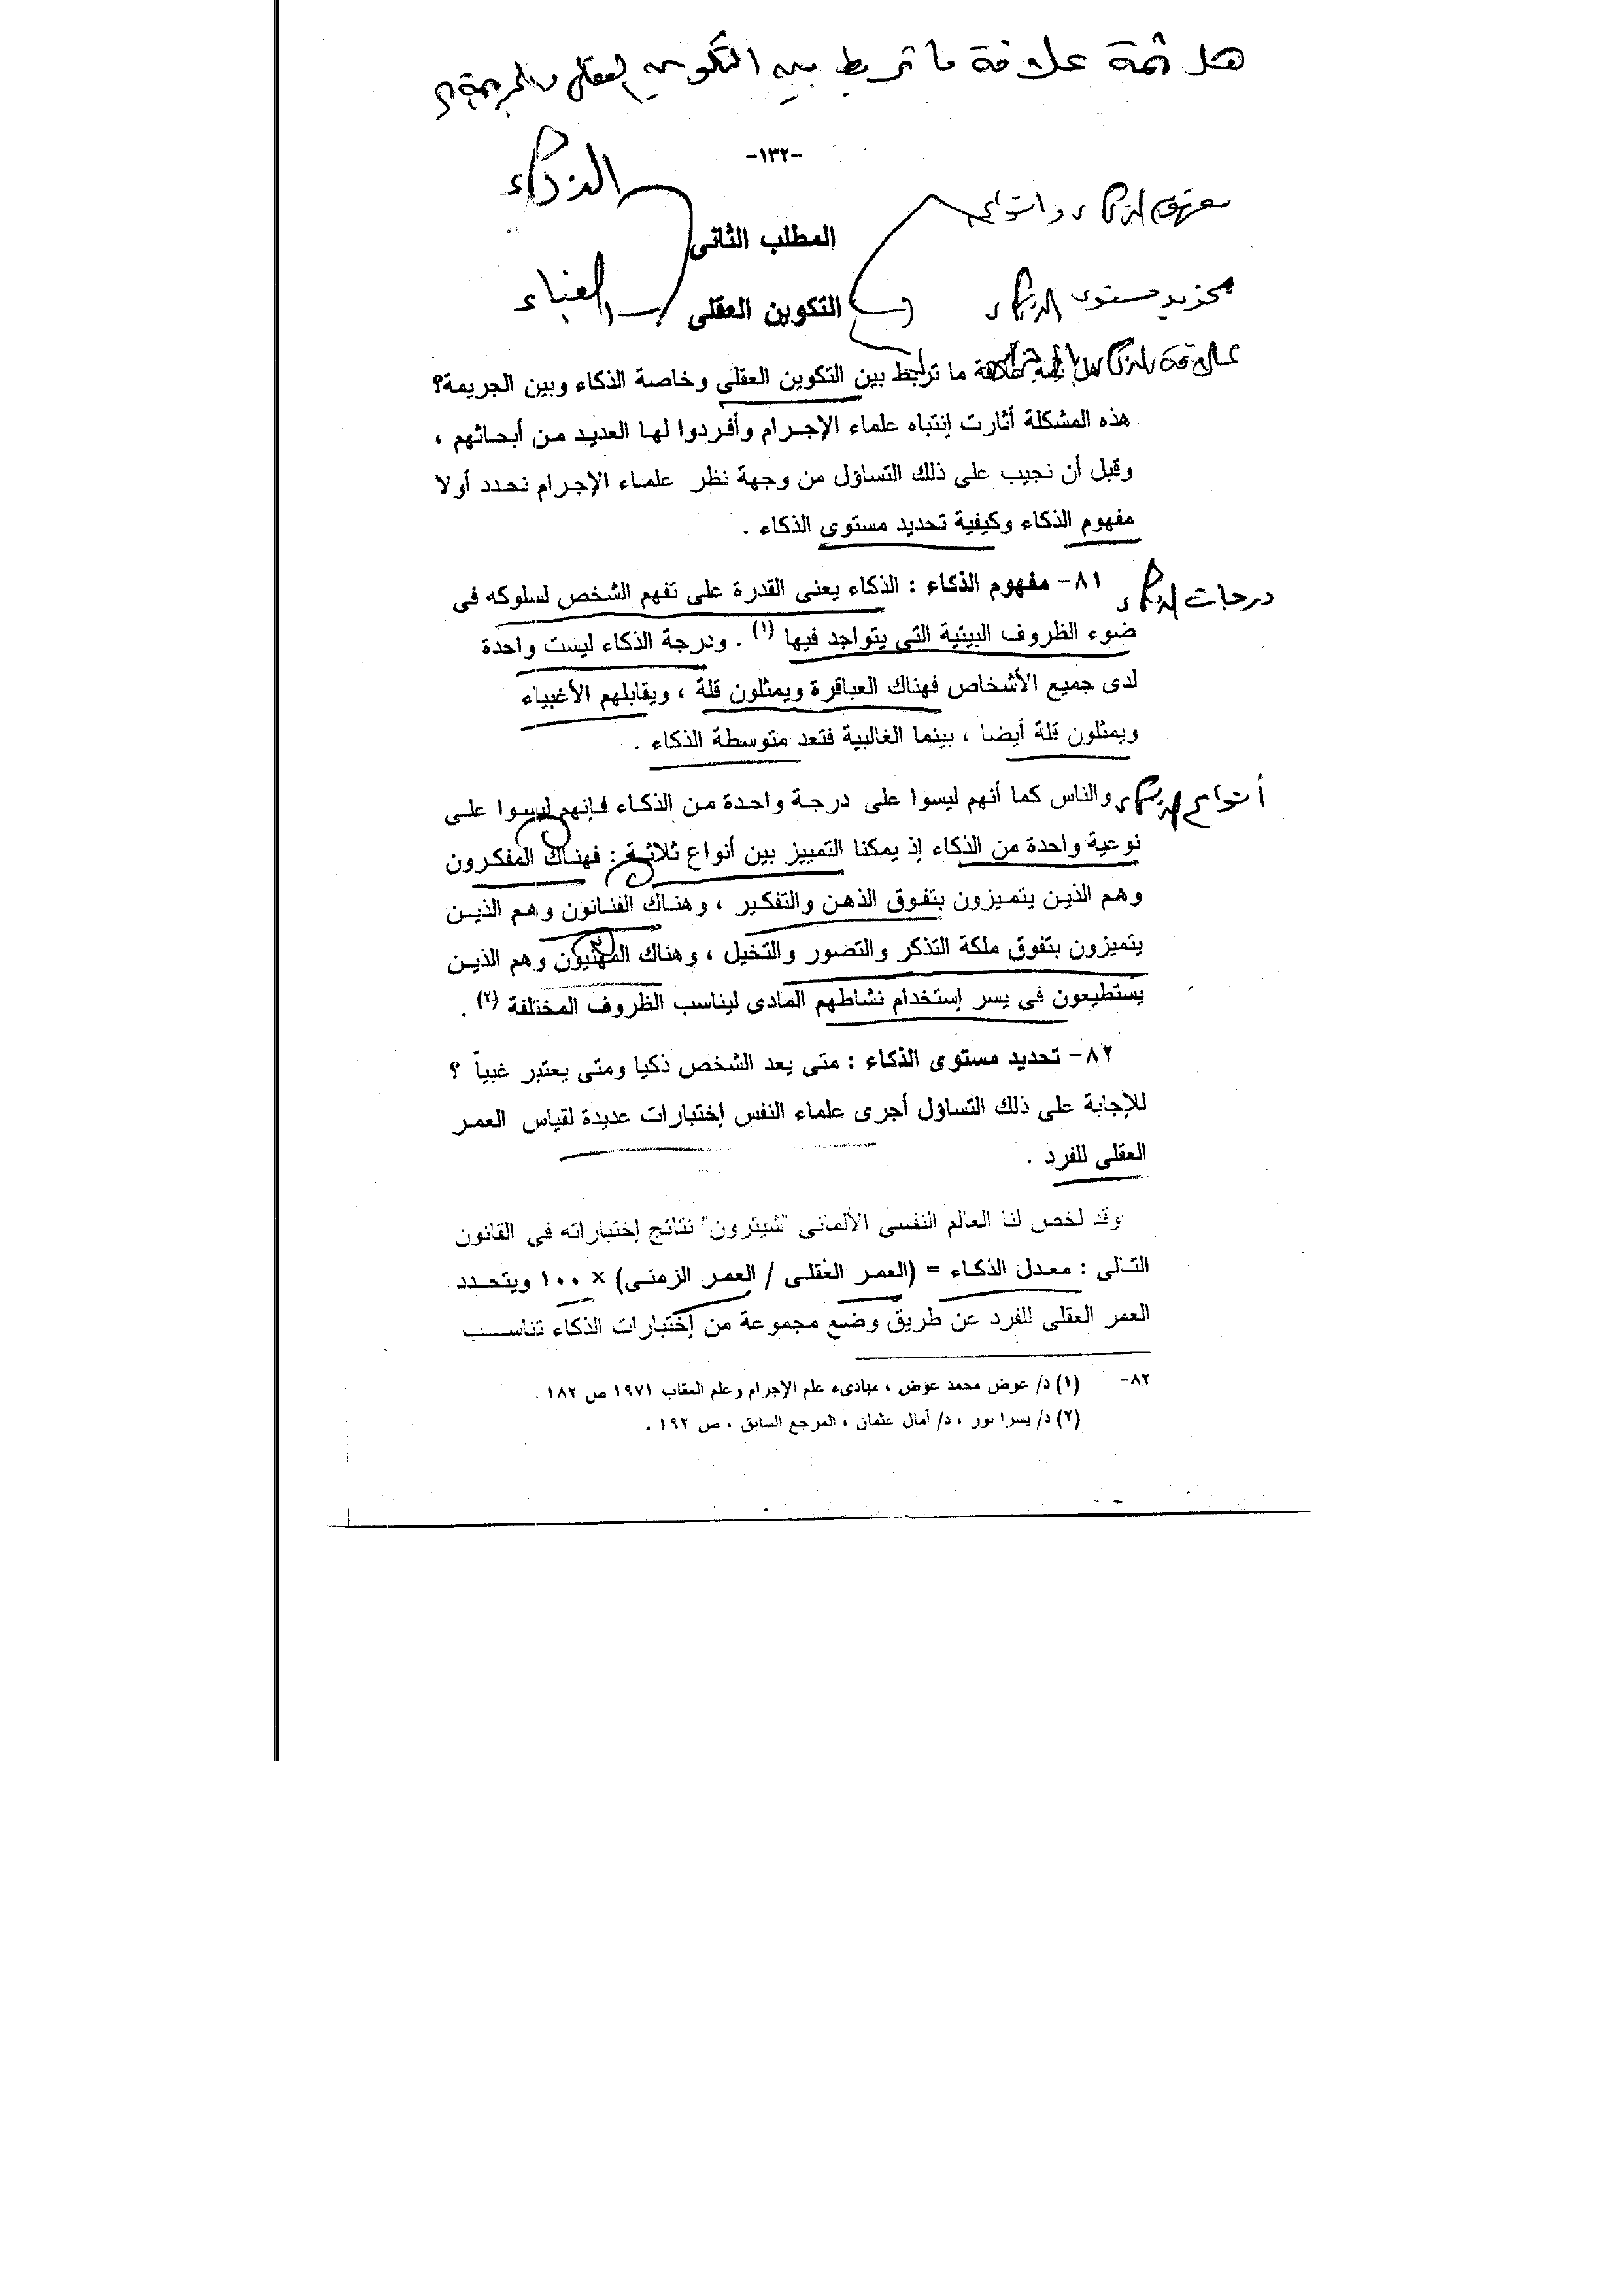 هل ثمة علاقة ما تربط بين التكوين العقلى والجريمة؟
-١٣٢-
الذكاء
مفهوم الذكاء وأنواعه
المطلب الثانى
الغباء
تحديد مستوى الذكاء
التكوين العقلى
علاقة الذكاء
هل ثمة علاقة ما تربط بين التكوين العقلى وخاصة الذكاء وبين الجريمة؟
هذه المشكلة أثارت إنتباه علماء الإجرام وأفردوا لها العديد من أبحاثهم ،
وقبل أن نجيب على ذلك التساؤل من وجهة نظر علماء الإجرام نحدد أولا
مفهوم الذكاء وكيفية تحديد مستوى الذكاء .
درجات الذكاء
٨١- مفهوم الذكاء : الذكاء يعنى القدرة على تفهم الشخص لسلوكه فى
ضوء الظروف البيئية التى يتواجد فيها (١) . ودرجة الذكاء ليست واحدة
لدى جميع الأشخاص فهناك العباقرة ويمثلون قلة ، ويقابلهم الأغبياء
ويمثلون قلة أيضا ، بينما الغالبية فتعد متوسطة الذكاء .
أنواع الذكاء
والناس كما أنهم ليسوا على درجة واحدة من الذكاء فإنهم ليسوا على
نوعية واحدة من الذكاء إذ يمكنا التمييز بين أنواع ثلاثة : فهناك المفكرون
وهم الذين يتميزون بتفوق الذهن والتفكير ، وهناك الفنانون وهم الذين
يتميزون بتفوق ملكة التذكر والتصور والتخيل ، وهناك المهنيون وهم الذين
يستطيعون فى يسر إستخدام نشاطهم المادى ليناسب الظروف المختلفة (٢) .
٨٢- تحديد مستوى الذكاء : متى يعد الشخص ذكيا ومتى يعتبر غبياً ؟
للإجابة على ذلك التساؤل أجرى علماء النفس إختبارات عديدة لقياس العمر
العقلى للفرد .
وقد لخص لنا العالم النفسى الألمانى "شيترون" نتائج إختباراته فى القانون
التالى : معدل الذكاء = (العمر العقلى / العمر الزمنى) × ١٠٠ ويتحدد
العمر العقلى للفرد عن طريق وضع مجموعة من إختبارات الذكاء تناسب
٨٢- (١) د/ عوض محمد عوض ، مبادىء علم الإجرام وعلم العقاب ١٩٧١ ص ١٨٢ .
(٢) د/ يسرا نور ، د/ أمال عثمان ، المرجع السابق ، ص ١٩٢ .